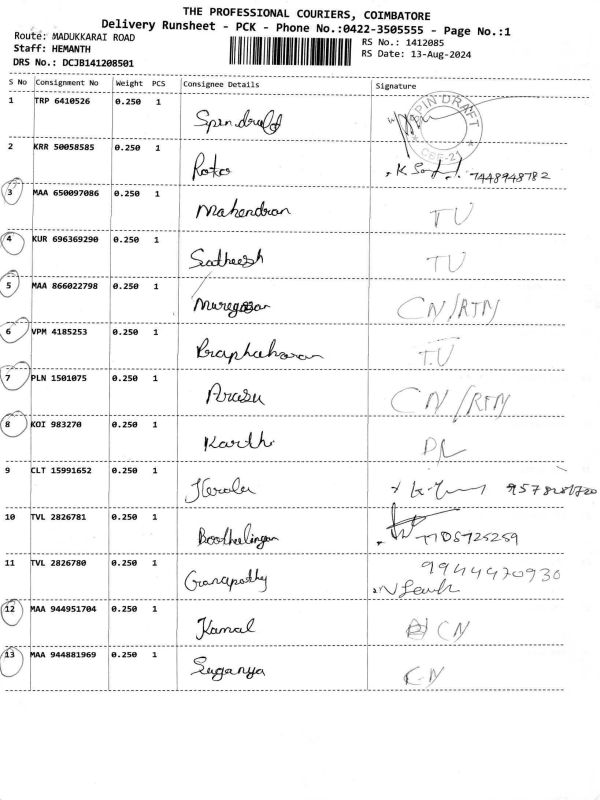 THE PROFESSIONAL COURIERS, COIMBATORE
Delivery Runsheet - PCK - Phone No.:0422-3505555 - Page No.:1
Route: MADUKKARAI ROAD
RS No.: 1412085
Staff: HEMANTH
RS Date: 13-Aug-2024
DRS No.: DCJB141208501
S No Consignment No Weight PCS Consignee Details Signature
1 TRP 6410526 0.250 1 Spindraft
SPIN DRAFT
CBE-21
2 KRR 50058585 0.250 1 Roto 7448948782
3 MAA 650097086 0.250 1 Mahendran TU
4 KUR 696369290 0.250 1 Satheesh TU
5 MAA 866022798 0.250 1 CN/RTN
6 VPM 4185253 0.250 1 Praphaharan T.U
7 PLN 1501075 0.250 1 Arasu CN/RTN
8 KOI 983270 0.250 1 Karthi DL
9 CLT 15991652 0.250 1 Kerala
10 TVL 2826781 0.250 1 Boothalingam
11 TVL 2826780 0.250 1 Ganapathy 9944470930
12 MAA 944951704 0.250 1 Kamal CN
13 MAA 944881969 0.250 1 Suganya CN